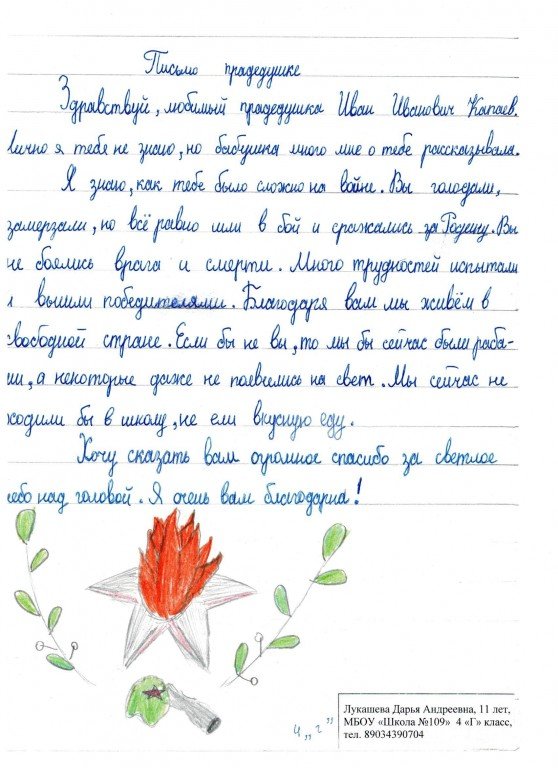 Письмо прадедушке
Здравствуй, любимый прадедушка Иван Иванович Капаев.
Лично я тебя не знаю, но бабушка много мне о тебе рассказывала.
Я знаю, как тебе было сложно на войне. Вы голодали,
замерзали, но всё равно шли в бой и сражались за Родину. Вы
не боялись врага и смерти. Много трудностей испытали
и вышли победителями. Благодаря вам мы живём в
свободной стране. Если бы не вы, то мы бы сейчас были раба-
ми, а некоторые даже не появились на свет. Мы сейчас не
ходили бы в школу, не ели вкусную еду.
Хочу сказать вам огромное спасибо за светлое
небо над головой. Я очень вам благодарна!
4 „г”
Лукашева Дарья Андреевна, 11 лет,
МБОУ «Школа №109» 4 «Г» класс,
тел. 89034390704